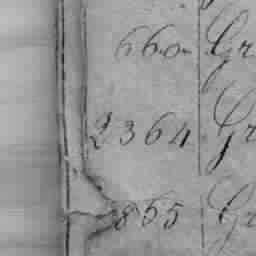 660 Gr
2364 Gr
865 Gr